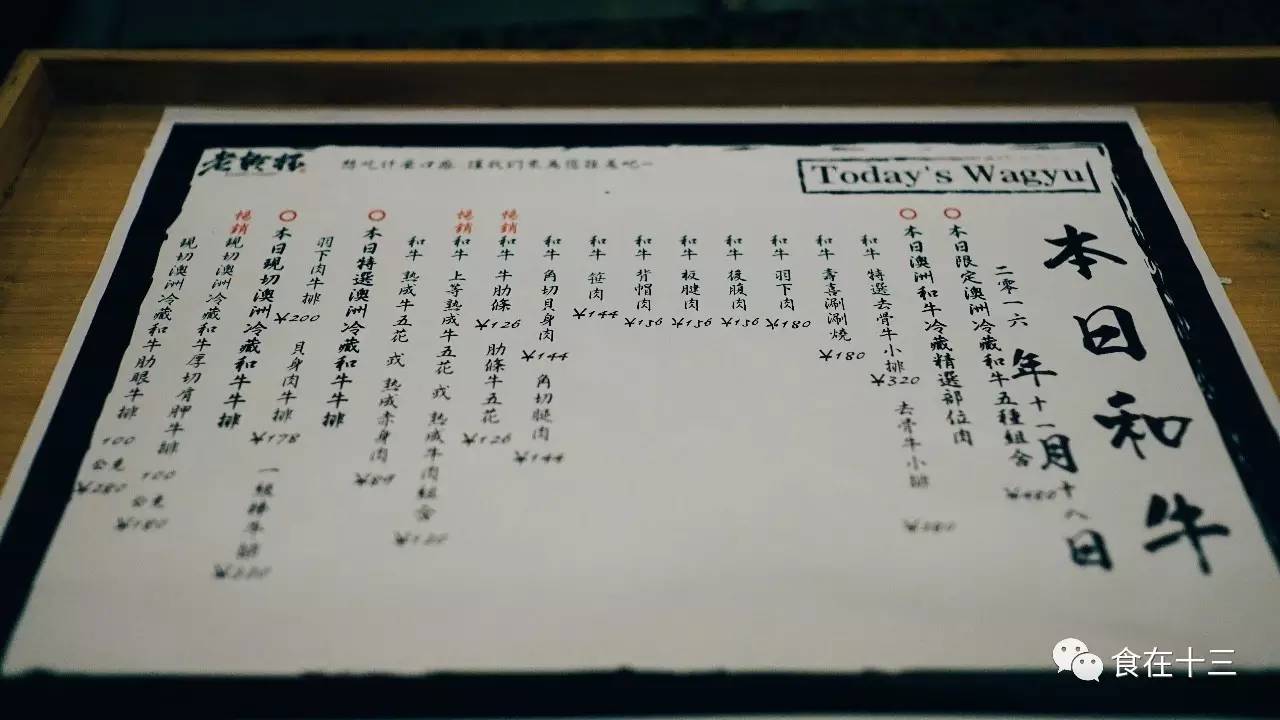 Today's Wagyu
本日和牛
二零一六年十一月十八日
本日限定澳洲冷藏和牛五種組合 ¥480
本日澳洲和牛冷藏精選部位肉
和牛 特選去骨牛小排 ¥320 去骨牛小排
和牛 壽喜涮涮燒 ¥180
和牛 羽下肉 ¥180
和牛 後腹肉 ¥156
和牛 板腱肉 ¥156
和牛 背帽肉 ¥156
和牛 笹肉 ¥144
和牛 角切貝身肉 ¥144 角切腿肉 ¥144
暢銷 和牛 牛肋條 ¥126 肋條牛五花 ¥126
暢銷 和牛 上等熟成牛五花 或 熟成牛肉組合
和牛 熟成牛五花 或 熟成赤身肉 ¥89
本日特選澳洲冷藏和牛牛排
羽下肉牛排 ¥200 貝身肉牛排 ¥178 一組
本日現切澳洲冷藏和牛牛排
暢銷 現切澳洲冷藏和牛厚切肩胛牛排 100 公克 ¥180
現切澳洲冷藏和牛肋眼牛排 100 公克 ¥280
食在十三